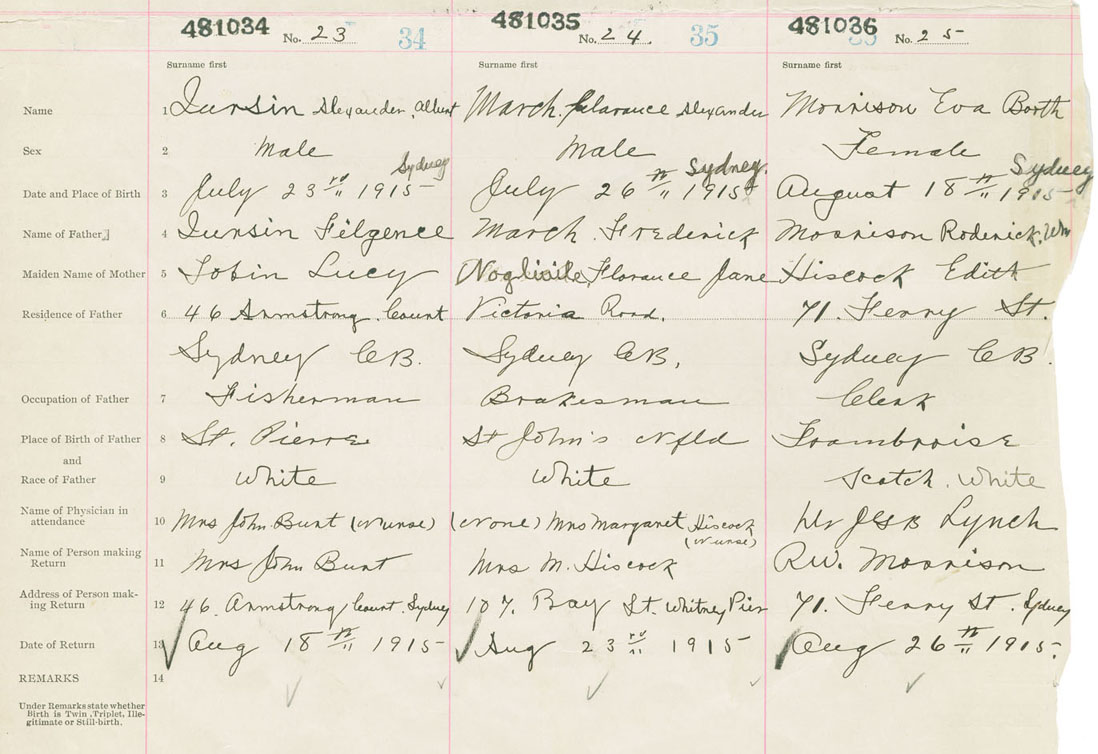 481034 No. 23 34 481035 No. 24. 35 481036 No. 25
Surname first Surname first Surname first
Name 1 Alexander Albert March Clarance Alexander Morrison Eva Borth
Sex 2 Male Male Female
Sydney Sydney. Sydney
Date and Place of Birth 3 July 23rd 1915 July 26th 1915 August 18th 1915
Name of Father 4 March. Frederick Morrison Roderick. Wm
Maiden Name of Mother 5 Tobin Lucy Florance Jane Hiscock Edith
Residence of Father 6 46 Armstrong. Court Victoria Road. 71. Ferry St.
Sydney C B. Sydney C B, Sydney C B.
Occupation of Father 7 Fisherman Brakesman Clerk
Place of Birth of Father 8 St. Pierre St John's Nfld Framboise
and
Race of Father 9 White White Scotch. White
Name of Physician in
attendance 10 Mrs John Bunt (Nurse) (None) Mrs Margaret Hiscock Lynch
(Nurse)
Name of Person making
Return 11 Mrs John Bunt Mrs M. Hiscock R.W. Morrison
Address of Person mak-
ing Return 12 46. Armstrong Court. Sydney 107. Bay St. Whitney Pier 71. Ferry St. Sydney
Date of Return 13 Aug 18th 1915 Aug 23rd 1915 Aug 26th 1915.
REMARKS 14
Under Remarks state whether
Birth is Twin, Triplet, Ille-
gitimate or Still-birth.